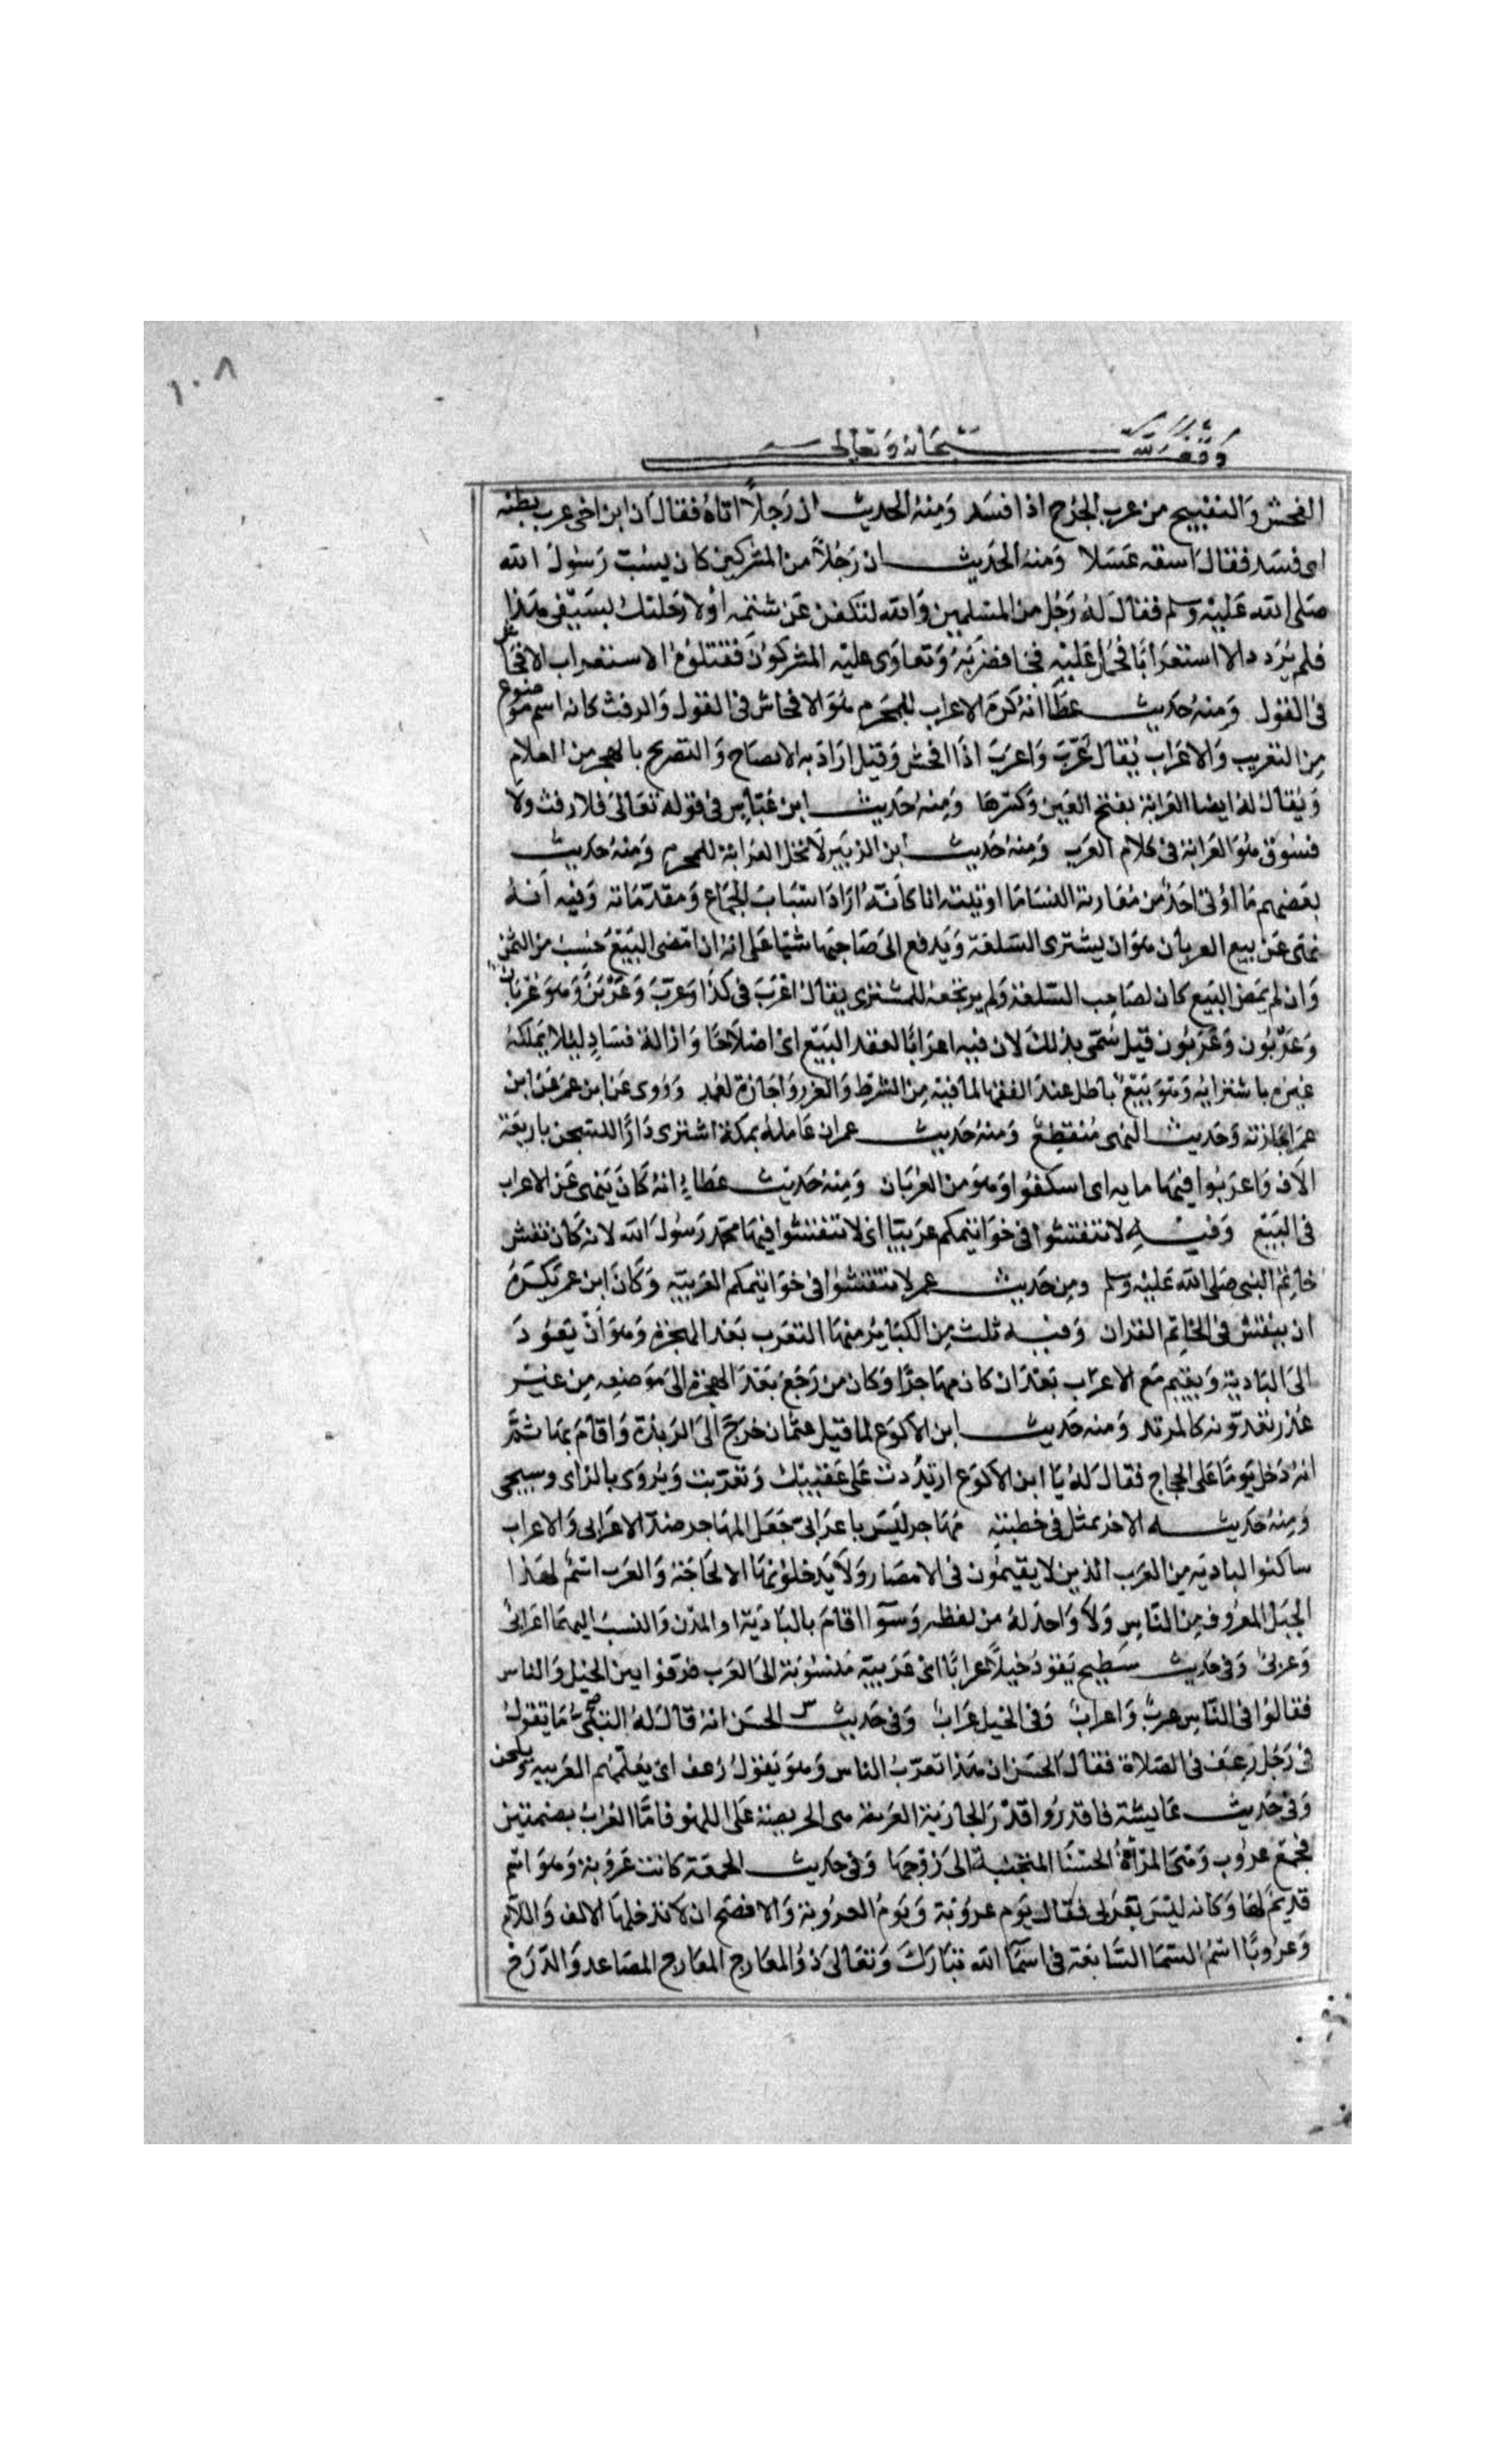 ١٠٨
وقف لله سبحانه وتعالى
الفحش والتقبيح من عرب الجرح اذا فسد ومنه الحديث ان رجلا اتاه فقال ان ابن اخى عرب بطنه
اى فسد فقال اسقه عسلا ومنه الحديث ان رجلا من المشركين كان يسب رسول الله
صلى الله عليه وسلم فقال له رجل من المسلمين والله لتكفن عن شتمه أو لارحلنك بسيفى هذا
فلم يزدد الا استعرابا فحمل عليه فضربه وتعاوى عليه المشركون فقتلوه الاستعراب الافحاش
فى القول ومنه حديث عطا انه كره الاعراب للمحرم هو الافحاش فى القول والرفث كانه اسم موضوع
من التعريب والاعراب يقال عرب واعرب اذا افحش وقيل اراد به الايضاح والتصريح بالهجر من الكلام
ويقال له ايضا العرابة بفتح العين وكسرها ومنه حديث ابن عباس فى قوله تعالى فلا رفث ولا
فسوق هو العرابة فى كلام العرب ومنه حديث ابن الزبير لا تحل العرابة للمحرم ومنه حديث
بعضهم ما اوتى احد من معاربة النسا ما اوتيته انا كأنه اراد اسباب الجماع ومقدماته وفيه انه
نهى عن بيع العربان هو ان يشترى السلعة ويدفع الى صاحبها شيا على انه ان امضى البيع حسب من الثمن
وان لم يمض البيع كان لصاحب السلعة ولم يرتجعه المشترى يقال اعرب فى كذا وعرب وعربن وهو عربان
وعربون وعربون قيل سمى بذلك لان فيه اعرابا لعقد البيع اى اصلاحا وازالة فساد ليلا يملكه
غيره باشترايه وهو بيع باطل عند الفقها لما فيه من الشرط والغرر واجازه احمد وروى عن ابن عمر عن ابن
عمر اجازته وحديث النهى منقطع ومنه حديث عمر ان عامله بمكة اشترى دارا للسجن باربعة
الاف واعربوا فيها ماية اى اسلفوا وهو من العربان ومنه حديث عطاء انه كان ينهى عن الاعراب
فى البيع وفيه لا تنقشوا فى خواتيمكم عربيا اى لا تنقشوا فيها محمد رسول الله لانه كان نقش
خاتم النبى صلى الله عليه وسلم ومن حديث عمر لا تنقشوا فى خواتيمكم العربية وكان ابن عمر يكره
ان ينقش فى الخاتم القران وفيه ثلث من الكباير منها التعرب بعد الهجرة وهو أن يعود
الى البادية ويقيم مع الاعراب بعد ان كان مهاجرا وكان من رجع بعد الهجرة الى موضعه من غير
عذر يعدونه كالمرتد ومنه حديث ابن الاكوع لما قتل عثمان خرج الى الربذة واقام بها ثم
انه دخل يوما على الحجاج فقال له يا ابن الاكوع ارتددت على عقبيك وتعربت ويروى بالزاى وسيجى
ومنه حديثه الاخر تمثل فى خطبته مهاجر ليس باعرابى جعل المهاجر ضد الاعرابى والاعراب
ساكنوا البادية من العرب الذين لا يقيمون فى الامصار ولا يدخلونها الا لحاجة والعرب اسم لهذا
الجيل المعروف من الناس ولا واحد له من لفظه وسوا اقام بالبادية او المدن والنسب اليهما اعرابى
وعربى وفى حديث سطيح يقود خيلا عرابا اى عربية منسوبة الى العرب فرقوا بين الخيل والناس
فقالوا فى الناس عرب واعراب وفى الخيل عراب وفى حديث الحسن انه قال له البتى ما تقول
فى رجل رعف فى الصلاة فقال الحسن ان هذا تعرب الناس وهو يقول رعف اى يعلمهم العربية ويلحن
وفى حديث عايشة فاقدروا قدر الجارية العربة هى الحريصة على اللهو فاما العرب بضمتين
فجمع عروب وهى المرأة الحسنا المتحببة الى زوجها وفى حديث الجمعة كانت عروبة وهو اسم
قديم لها وكانه ليس بعربى فقال يوم عروبة ويوم العروبة والافصح ان لا تدخلها الالف واللام
وعروبا اسم السما السابعة فى اسما الله تبارك وتعالى ذو المعارج المعارج المصاعد والدرج